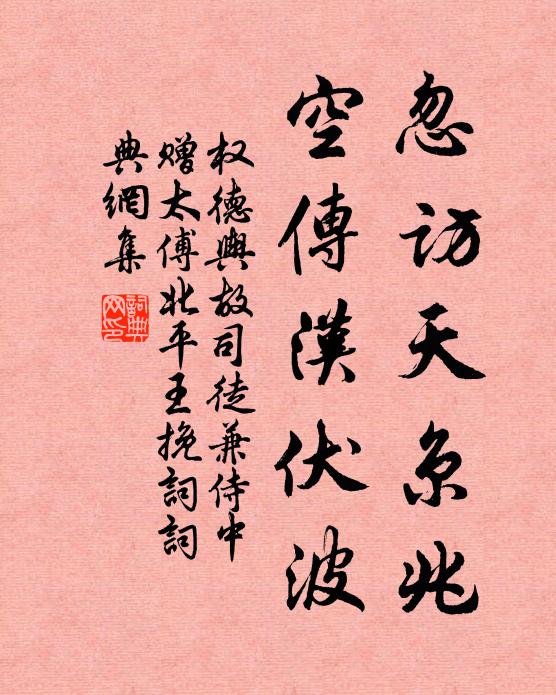 忽访天京兆
空傳漢伏波
权德輿故司徒兼侍中
赠太傅北平王挽詞詞
典網集
詞典网印